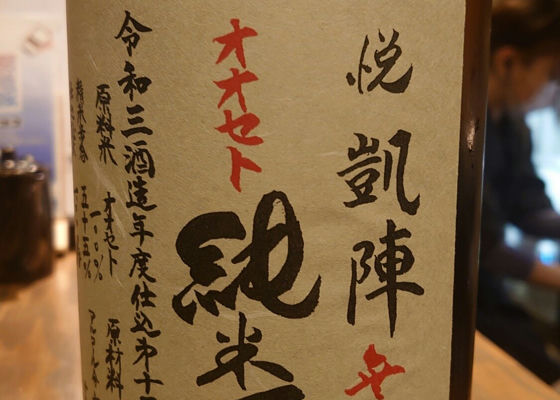 悦凱陣
オオセト
純米
令和三酒造年度仕込第十
原料米 オオセト 一〇〇% 原材料
精米歩合 五十五%